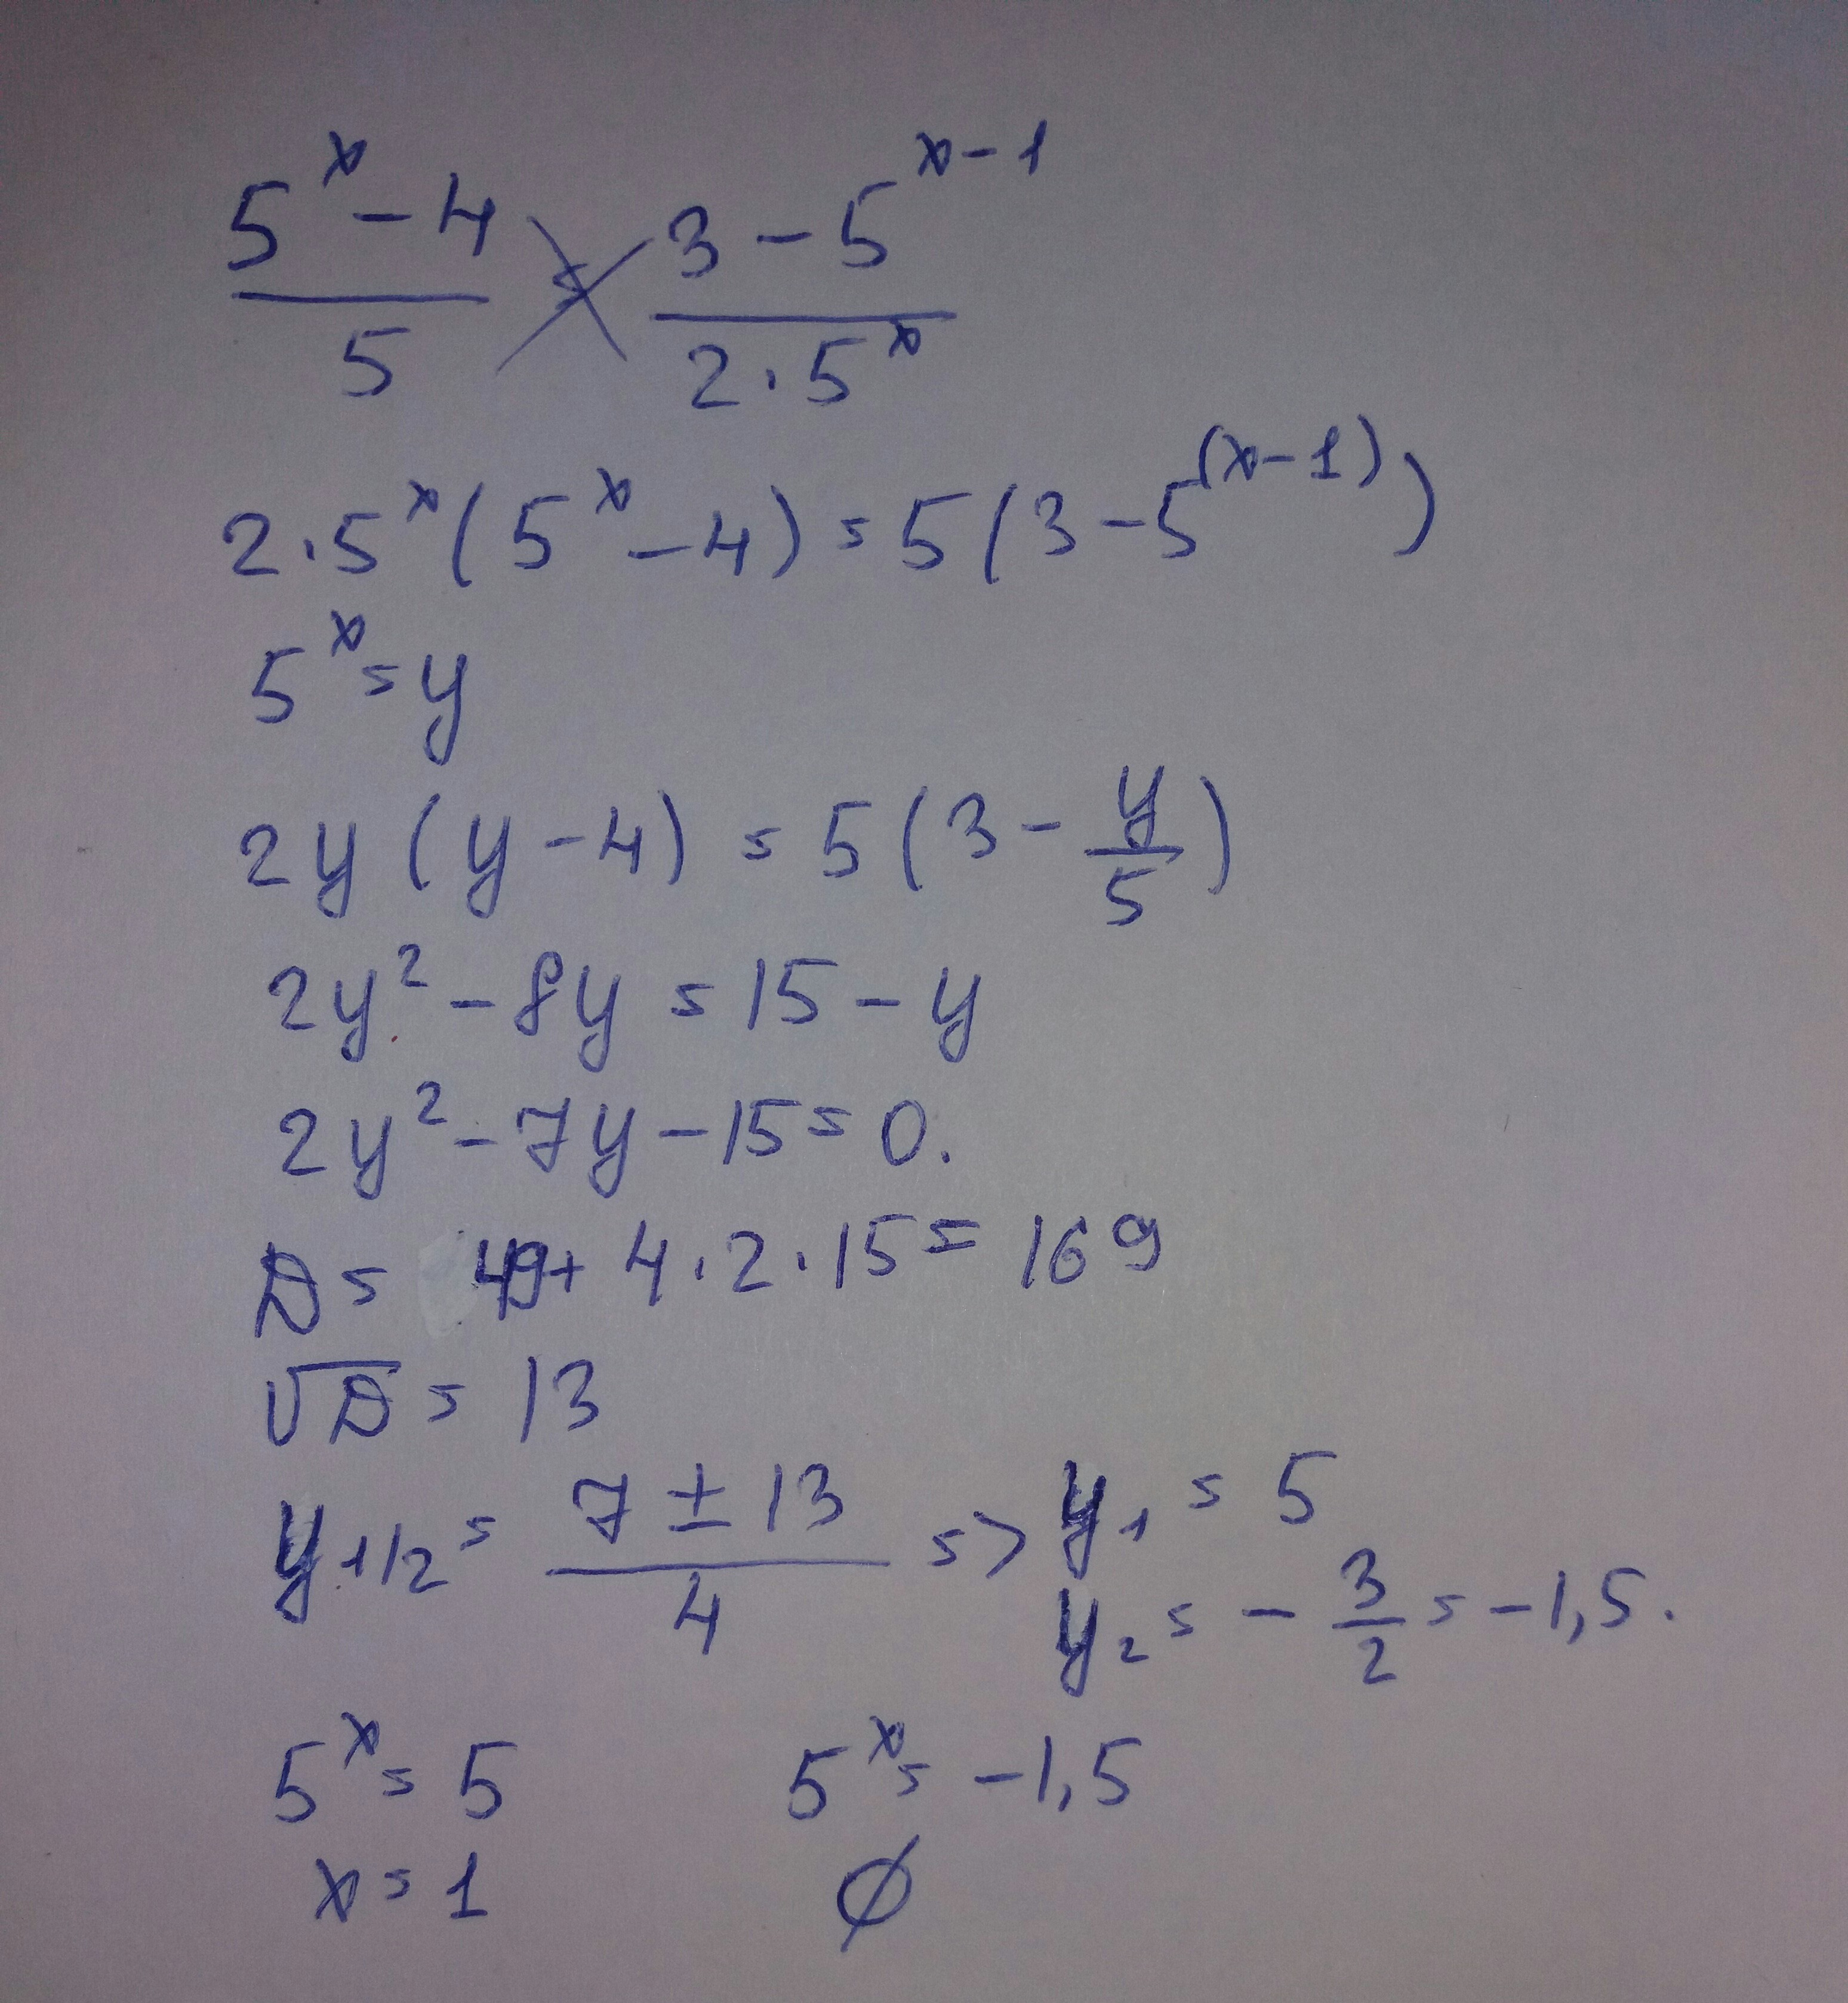 (5^x - 4)/5 = (3 - 5^(x-1))/(2·5^x)
2·5^x(5^x - 4) = 5(3 - 5^(x-1))
5^x = y
2y(y - 4) = 5(3 - y/5)
2y² - 8y = 15 - y
2y² - 7y - 15 = 0.
D = 49 + 4·2·15 = 169
√D = 13
y1/2 = (7 ± 13)/4 => y₁ = 5
y₂ = -3/2 = -1,5.
5^x = 5 5^x = -1,5
x = 1 ∅